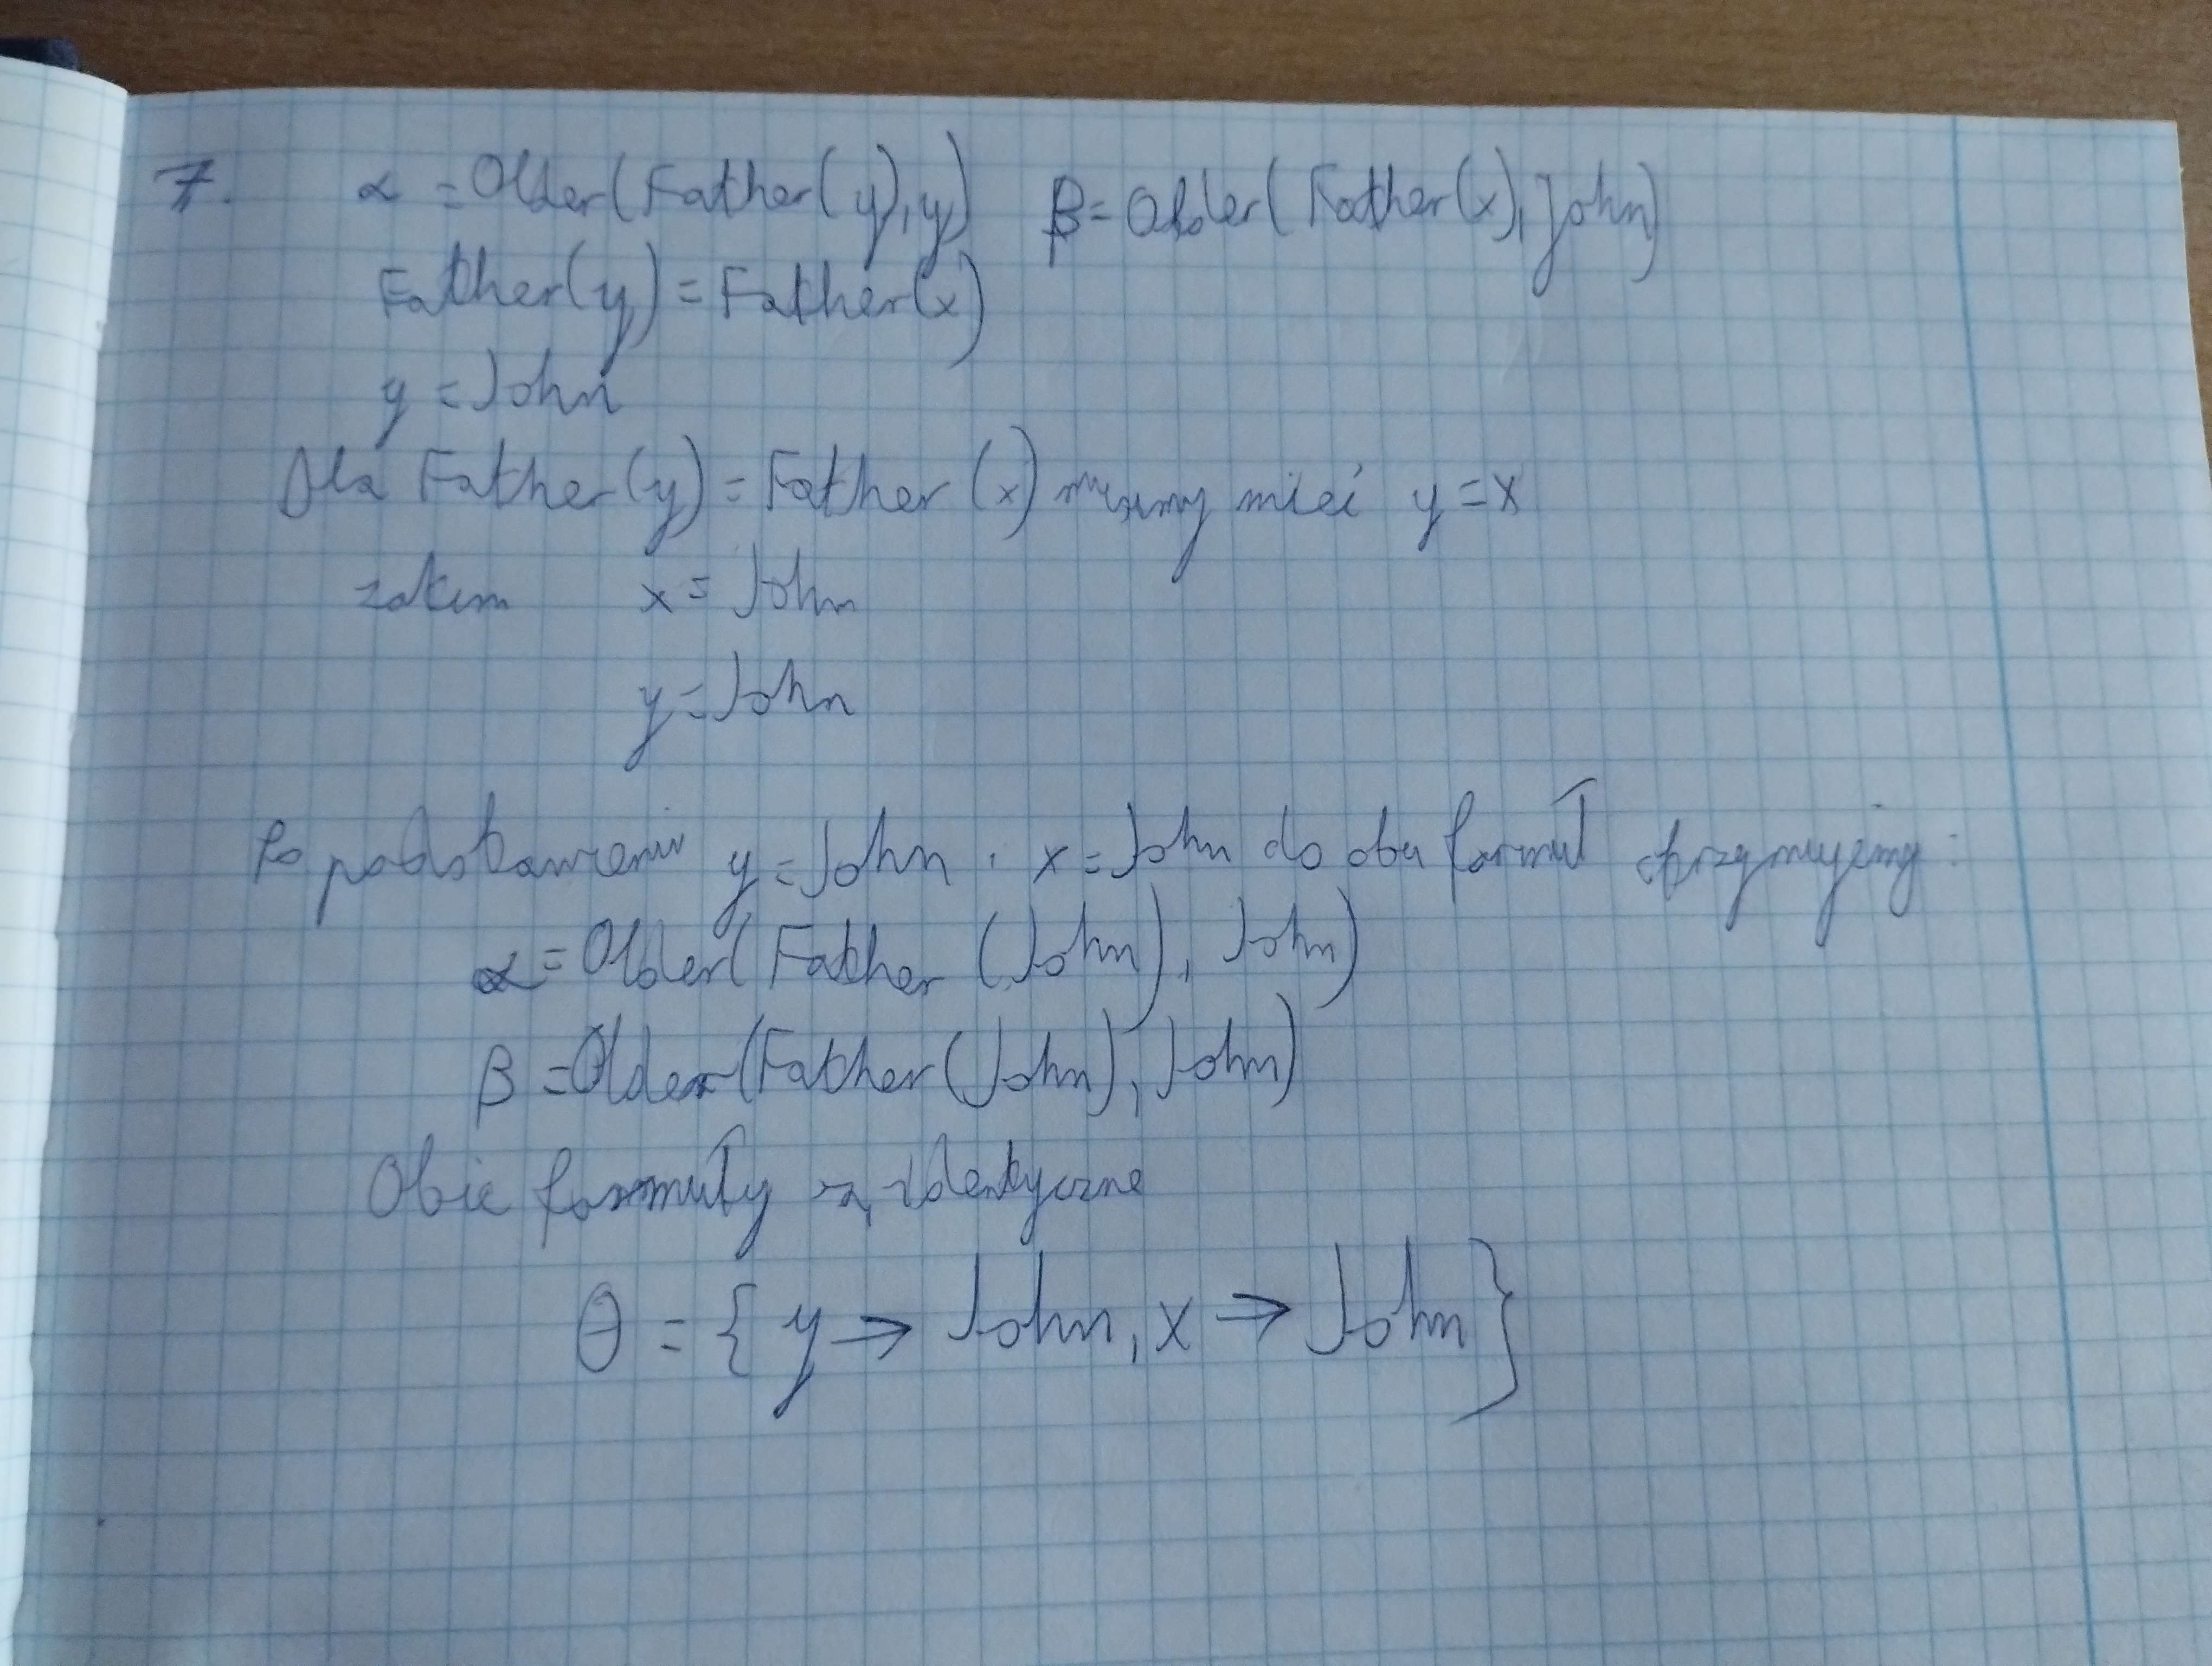 7. α = Older(Father(y), y) β = Older(Father(x), John)
Father(y) = Father(x)
y = John
Dla Father(y) = Father(x) musimy mieć y = x
zatem x = John
y = John
Po podstawieniu y = John i x = John do obu formuł otrzymujemy:
α = Older(Father(John), John)
β = Older(Father(John), John)
Obie formuły są identyczne
θ = {y → John, x → John}